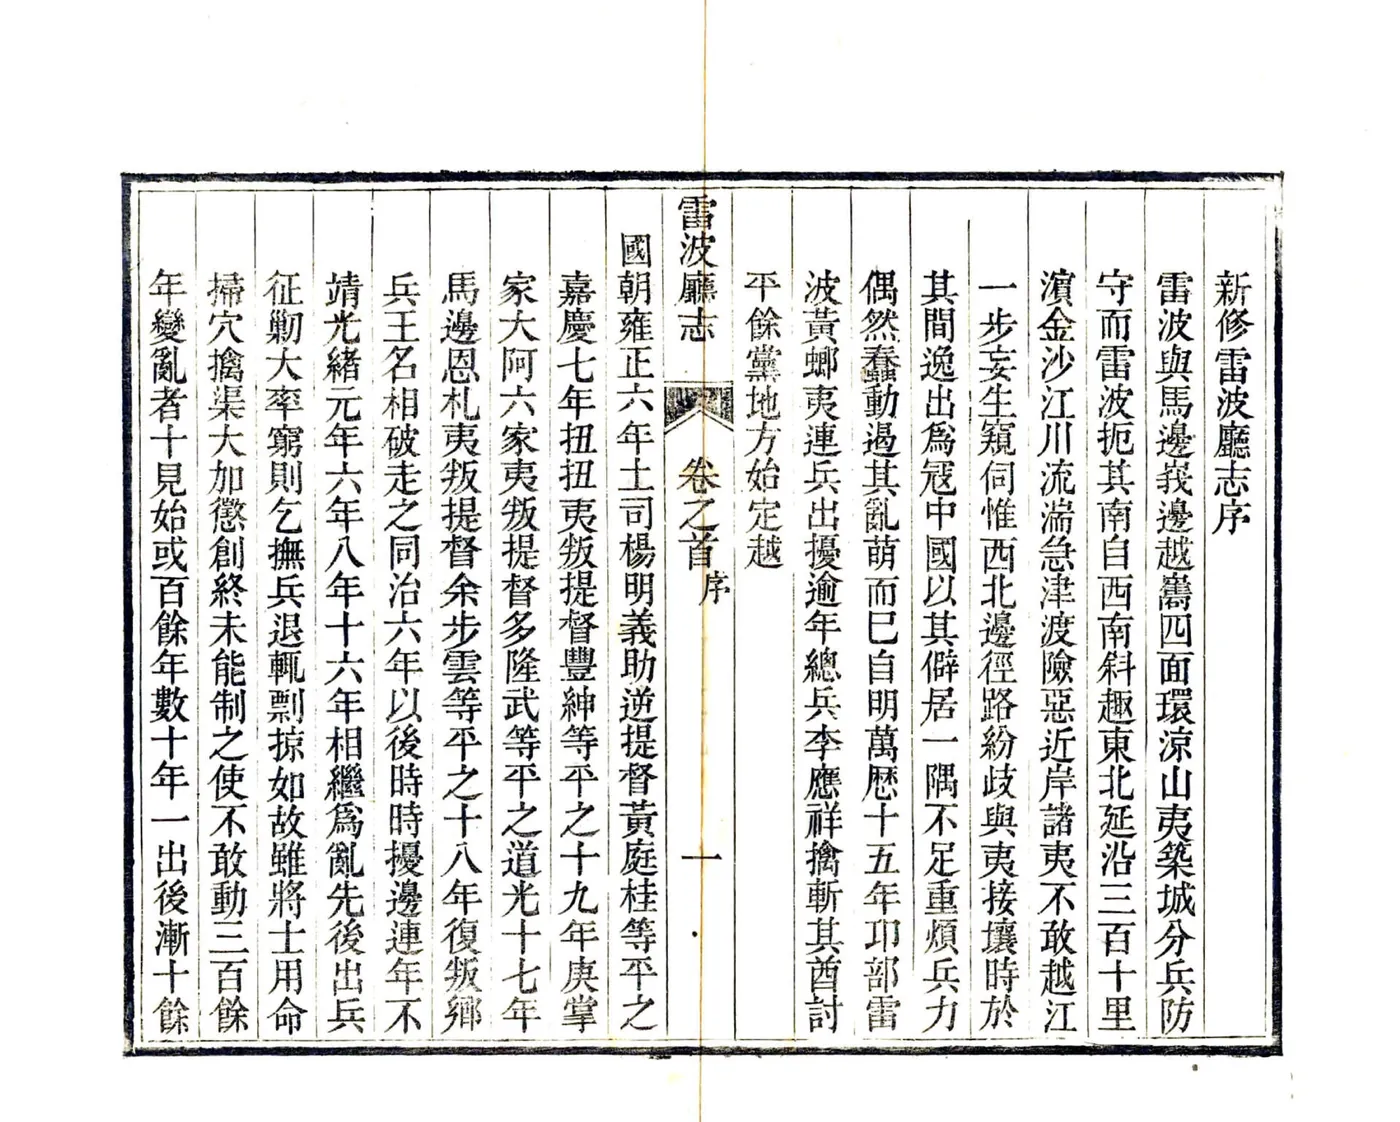 新修雷波廳志序
雷波與馬邊峩邊越嶲四面環涼山夷築城分兵防
守而雷波扼其南自西南斜趣東北延沿三百十里
濱金沙江川流湍急津渡險惡近岸諸夷不敢越江
一步妄生窺伺惟西北邊徑路紛歧與夷接壤時於
其間逸出爲冦中國以其僻居一隅不足重煩兵力
偶然蠢動遏其亂萌而巳自明萬歷十五年卭部雷
波黃螂夷連兵出擾逾年總兵李應祥擒斬其酋討
平餘黨地方始定越
雷波廳志
卷之首
序
一
國朝雍正六年土司楊明義助逆提督黃庭桂等平之
嘉慶七年扭扭夷叛提督豐紳等平之十九年庚掌
家大阿六家夷叛提督多隆武等平之道光十七年
馬邊恩札夷叛提督余步雲等平之十八年復叛鄉
兵王名相破走之同治六年以後時時擾邊連年不
靖光緒元年六年八年十六年相繼爲亂先後出兵
征勦大率窮則乞撫兵退輒剽掠如故雖將士用命
掃穴擒渠大加懲創終未能制之使不敢動三百餘
年變亂者十見始或百餘年數十年一出後漸十餘